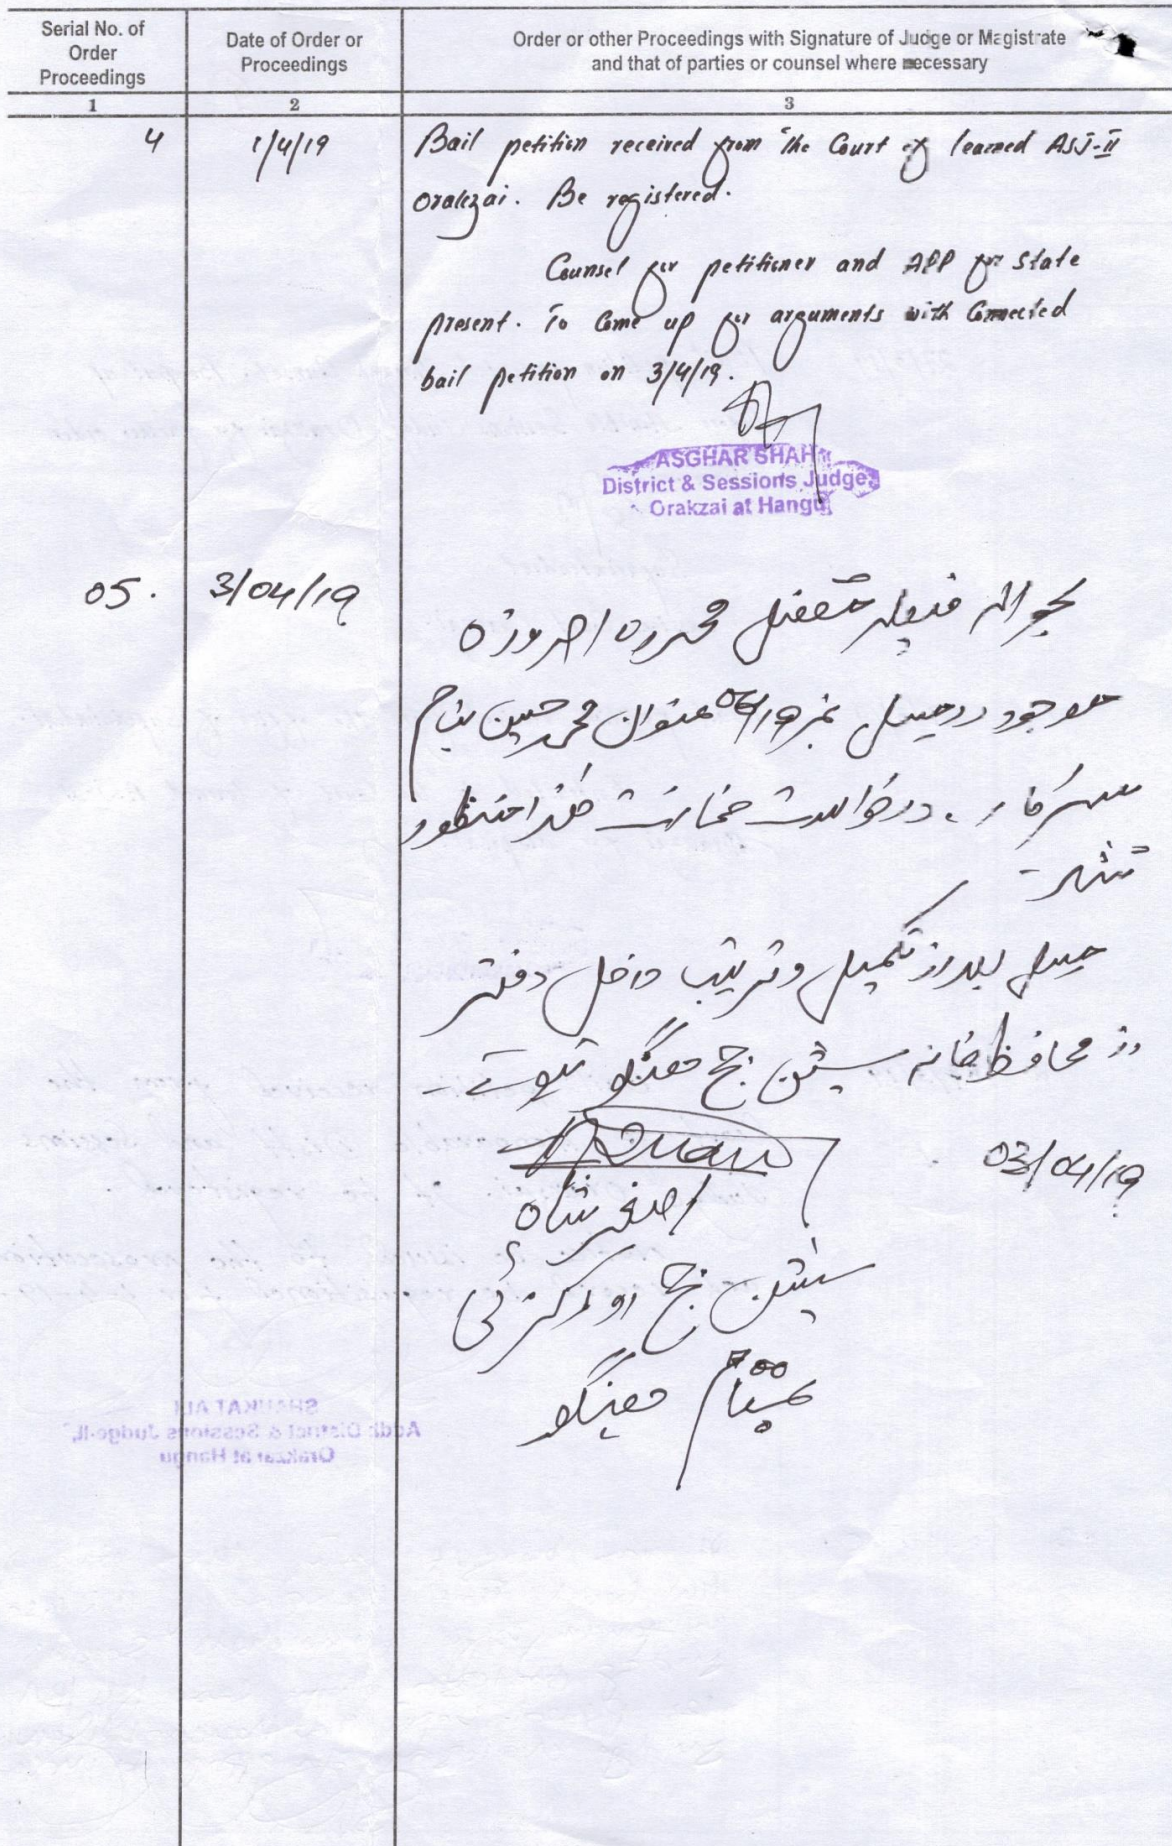 Serial No. of Order Proceedings
Date of Order or Proceedings
Order or other Proceedings with Signature of Judge or Magistrate and that of parties or counsel where necessary
1 2 3
4 1/4/19 Bail petition received from the Court of learned ASJ-II
Orakzai. Be registered.
Counsel for petitioner and APP for State
present. To Come up for arguments with Connected
bail petition on 3/4/19.
ASGHAR SHAH
District & Sessions Judge,
Orakzai at Hangu
05. 3/04/19 بحوالہ فیصلہ مفصل محررہ امروزہ
موجود درمسل نمبر بعنوان محمد حسین بنام
سرکار، درخواست ضمانت ھذا منظور
شد۔
مسل بعد از تکمیل و ترتیب داخل دفتر
در محافظ خانہ سیشن جج ھنگو ہووے۔
03/04/19
اصغر شاہ
سیشن جج اورکزئی
بمقام ھنگو
SHAUKAT ALI
Addl: District & Sessions Judge-II,
Orakzai at Hangu